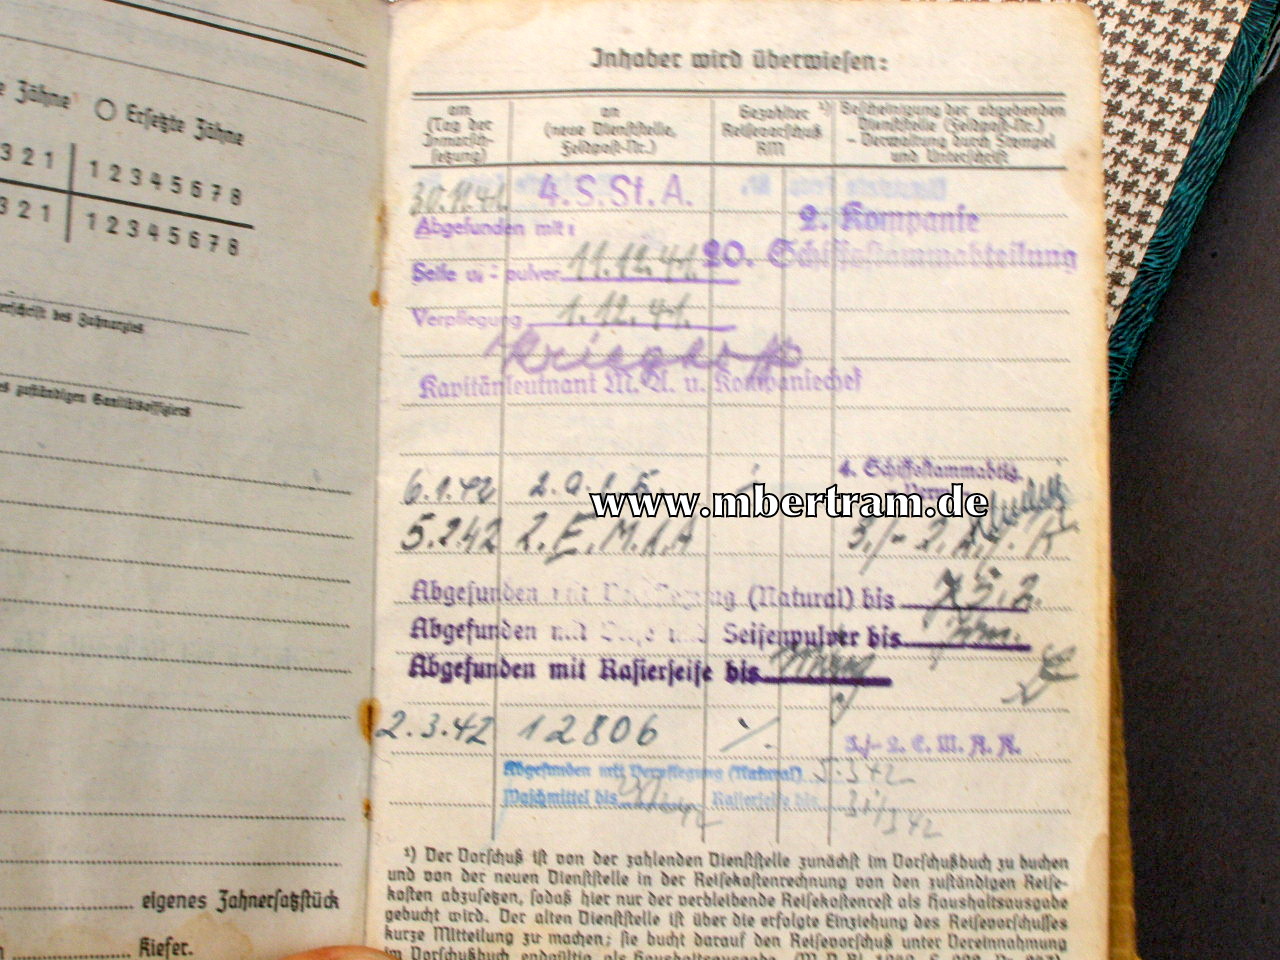 Zähne
Ersetzte Zähne
3 2 1 1 2 3 4 5 6 7 8
3 2 1 1 2 3 4 5 6 7 8
des Zahnarztes
zuständigen Sanitätsoffiziers
eigenes Zahnersatzstück
Kiefer.
Inhaber wird überwiesen:
am (Tag der Inmarsch-setzung)
an (neue Dienststelle, Feldpost-Nr.)
Gezahlter Reisevorschuß RM ¹)
Bescheinigung der abgehenden Dienststelle (Feldpost-Nr.) – Verwaltung durch Stempel und Unterschrift
30.11.41. 4. S. St. A.
2. Kompanie
Abgefunden mit:
20. Schiffsstammabteilung
Seife u. - pulver 11.12.41.
Verpflegung 1.12.41.
Kapitänleutnant M. A. u. Kompaniechef
4. Schiffsstammabtlg.
6.1.42
www.mbertram.de
5.2.42 2. E. M. A. A
Abgefunden mit Verpflegung (Natural) bis 5.2.
Abgefunden mit Seife und Seifenpulver bis
Abgefunden mit Rasierseife bis
2.3.42 12806
3./- 2. E. M. A. A.
Abgefunden mit Verpflegung (Natural) 5.3.42
Waschmittel bis Rasierseife bis
¹) Der Vorschuß ist von der zahlenden Dienststelle zunächst im Vorschußbuch zu buchen
und von der neuen Dienststelle in der Reisekostenrechnung von den zuständigen Reise-
kosten abzusetzen, sodaß hier nur der verbleibende Reisekostenrest als Haushaltsausgabe
gebucht wird. Der alten Dienststelle ist über die erfolgte Einziehung des Reisevorschusses
kurze Mitteilung zu machen; sie bucht darauf den Reisevorschuß unter Vereinnahmung
im Vorschußbuch endgültig als Haushaltsausgabe.